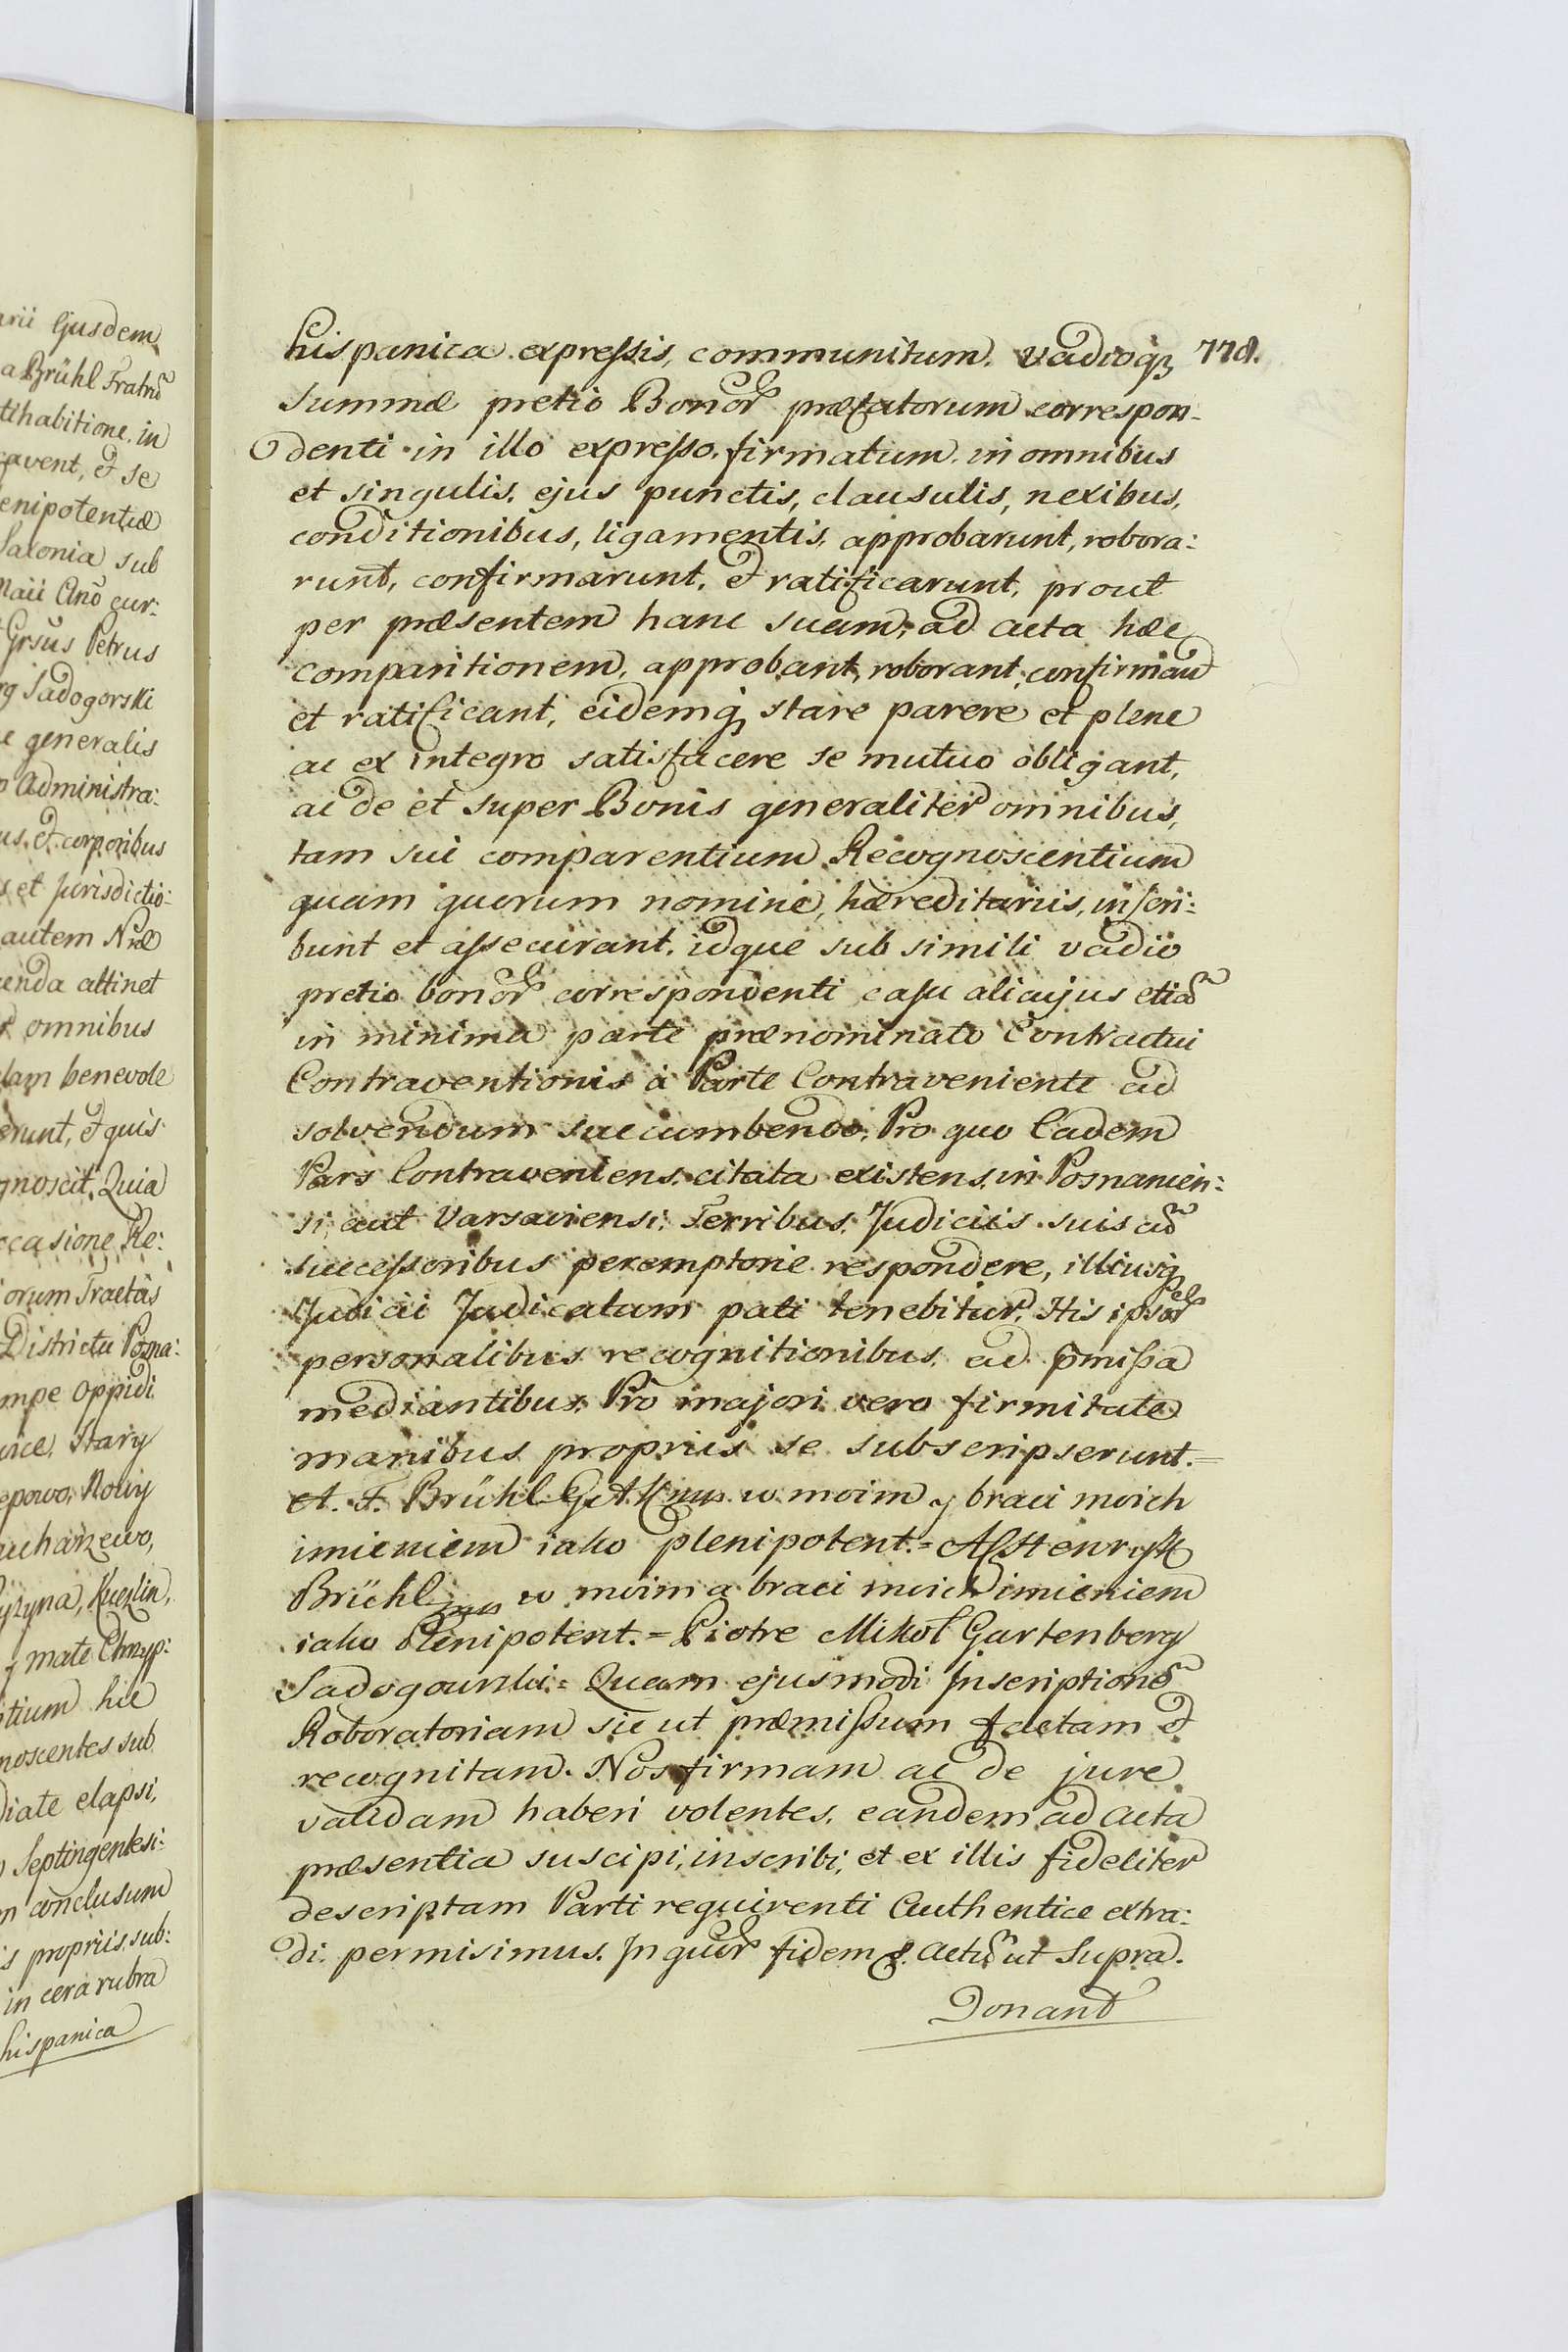 arii Ejusdem
a Brühl Fratrũ
tihabitione in
cavent, et se
enipotentiæ
Saxonia sub
Maii Ano cur:
Grsus Petrus
rg Sadogorski
e generalis
o Administra:
us, et corporibus
s et Jurisdictio:
autem Nræ
enda attinet
omnibus
dam benevole
erunt, et quis
gnoscit. Quia
occasione Re:
orum Tractus
Districtu Posna:
mpe Oppidi
Stary
epowo, Nowy
ucharzewo,
yzyna, Kuczlin,
y małe Chrzyp:
tium hic
noscentes sub
diate elapsi,
Septingentesi:
m conclusum
is propriis sub:
in cera rubra
hispanica
hispanica expressis, communitum, vadioq3 778.
summæ pretio Bonor præfatorum correspon-
denti in illo expresso, firmatum, in omnibus
et singulis, ejus punctis, clausulis, nexibus,
conditionibus, ligamentis, approbarunt, robora:
runt, confirmarunt, et ratificarunt, prout
per præsentem hanc suam, ad acta hæc
comparitionem, approbant, roborant, confirmant
et ratificant, eidemq stare parere et plene
ac ex integro satisfacere se mutuo obligant,
ac de et super Bonis generaliter omnibus,
tam sui comparentium Recognoscentium
quam quorum nomine, hæreditariis, inscri:
bunt et assecurant, idque sub simili vadio
pretio bonor correspondenti casu alicujus etiã
in minima parte prænominato Contractui
Contraventionis à Parte Contraveniente ad
solvendum succumbendo, Pro quo Eadem
Pars Contraveniens, citata existens, in Posnanien:
si, aut Varsaviensi: Terribus, Judiciis suis cũ
successoribus peremptorie respondere, illiusq
Judicii Judicatum pati tenebitur. His ipsor
personalibus recognitionibus, ad p̃missa
mediantibus. Pro majori vero firmitate
manibus propriis se subscripserunt.=
A. F. Brühl w moim y braci moich
imieniem iako plenipotent.= A. Henryk
Brühl mp w moim a braci moich imieniem
iako Plenipotent.= Piotre Mikoł Gartenberg
Sadogourski= Quam ejusmodi Inscriptionẽ
Roboratoriam sic ut præmissum factam et
recognitam. Nos firmam ac de jure
validam haberi volentes, eandem ad acta
præsentia suscipi, inscribi, et ex illis fideliter
descriptam Parti requirenti Authentice extra:
di permisimus. In quor fidem &. Actũ ut Supra.
Donant